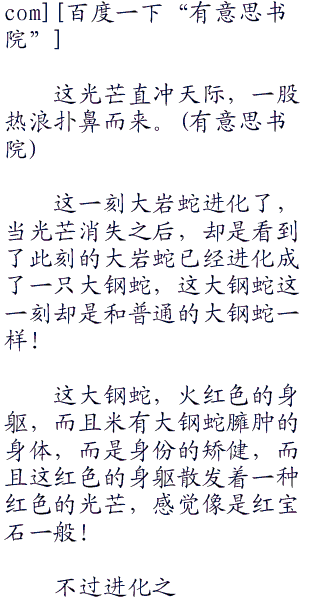 com][百度一下“有意思书
院”]
这光芒直冲天际，一股
热浪扑鼻而来。(有意思书
院)
这一刻大岩蛇进化了，
当光芒消失之后，却是看到
了此刻的大岩蛇已经进化成
了一只大钢蛇，这大钢蛇这
一刻却是和普通的大钢蛇一
样！
这大钢蛇，火红色的身
躯，而且米有大钢蛇臃肿的
身体，而是身份的矫健，而
且这红色的身躯散发着一种
红色的光芒，感觉像是红宝
石一般！
不过进化之